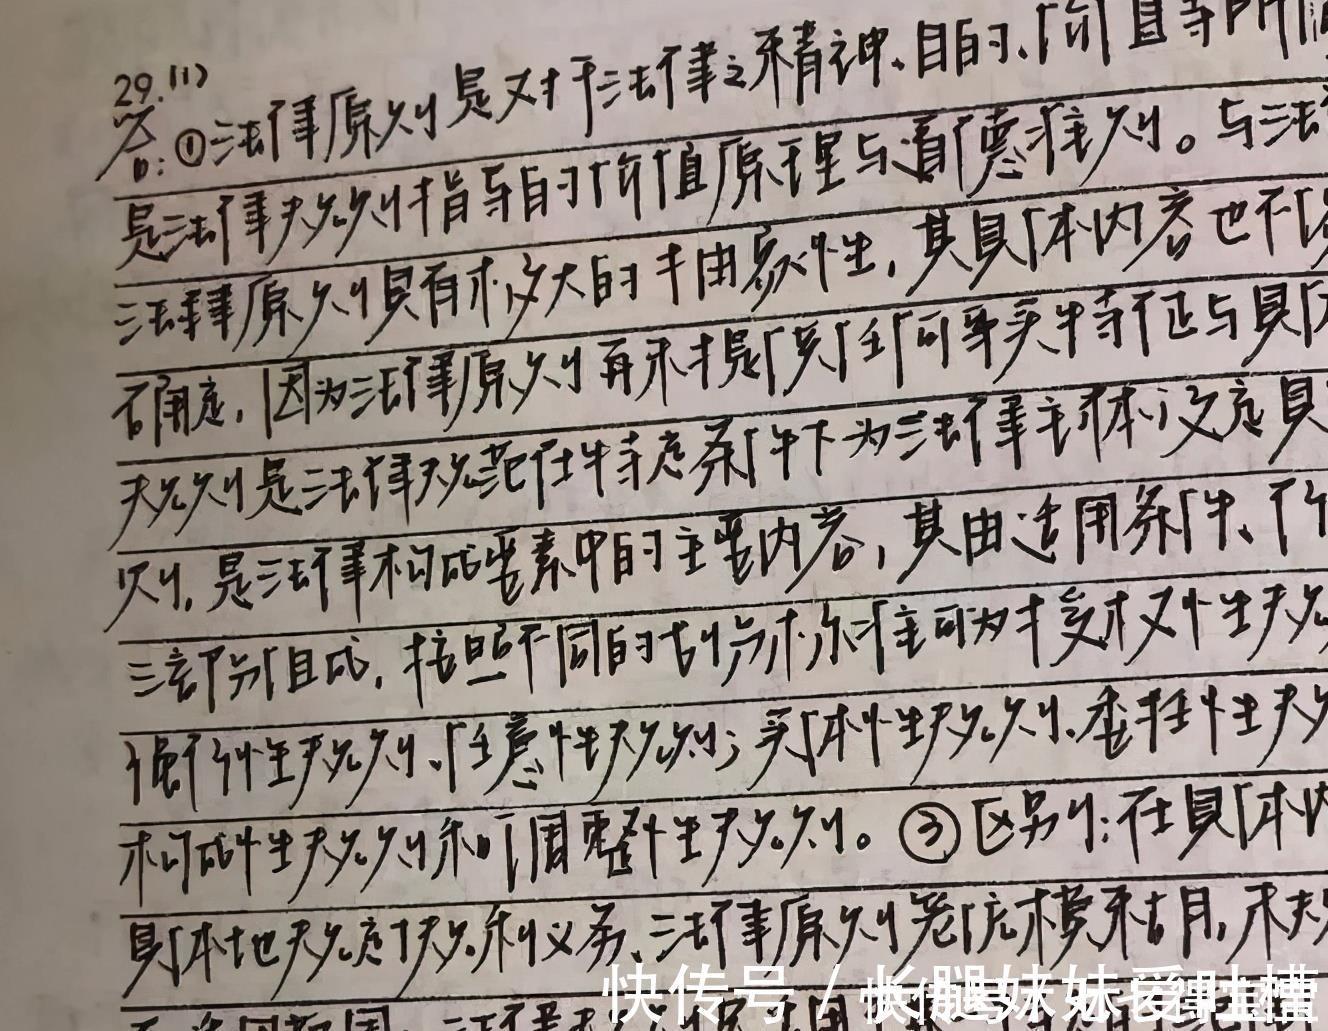 29.(1)
答:①法律原则是对于法律之精神、目的、价值等所
是法律规则指导的价值原理与道德准则。与法
法律原则具有极大的抽象性,其具体内容也不
确定,因为法律原则再未提供任何事实特征与具
规则是法律规范在特定条件下为法律主体设定具
则,是法律构成要素中的主要内容,其由适用条件、行
三部分组成,按照不同的划分标准可为授权性规
强行性规则、任意性规则;实体性规则、委托性规
构成性规则和调整性规则。③区别:在具体内
具体地规定了规则义务、法律原则笼统模糊,未规
快传号/长腿妹妹爱吐槽